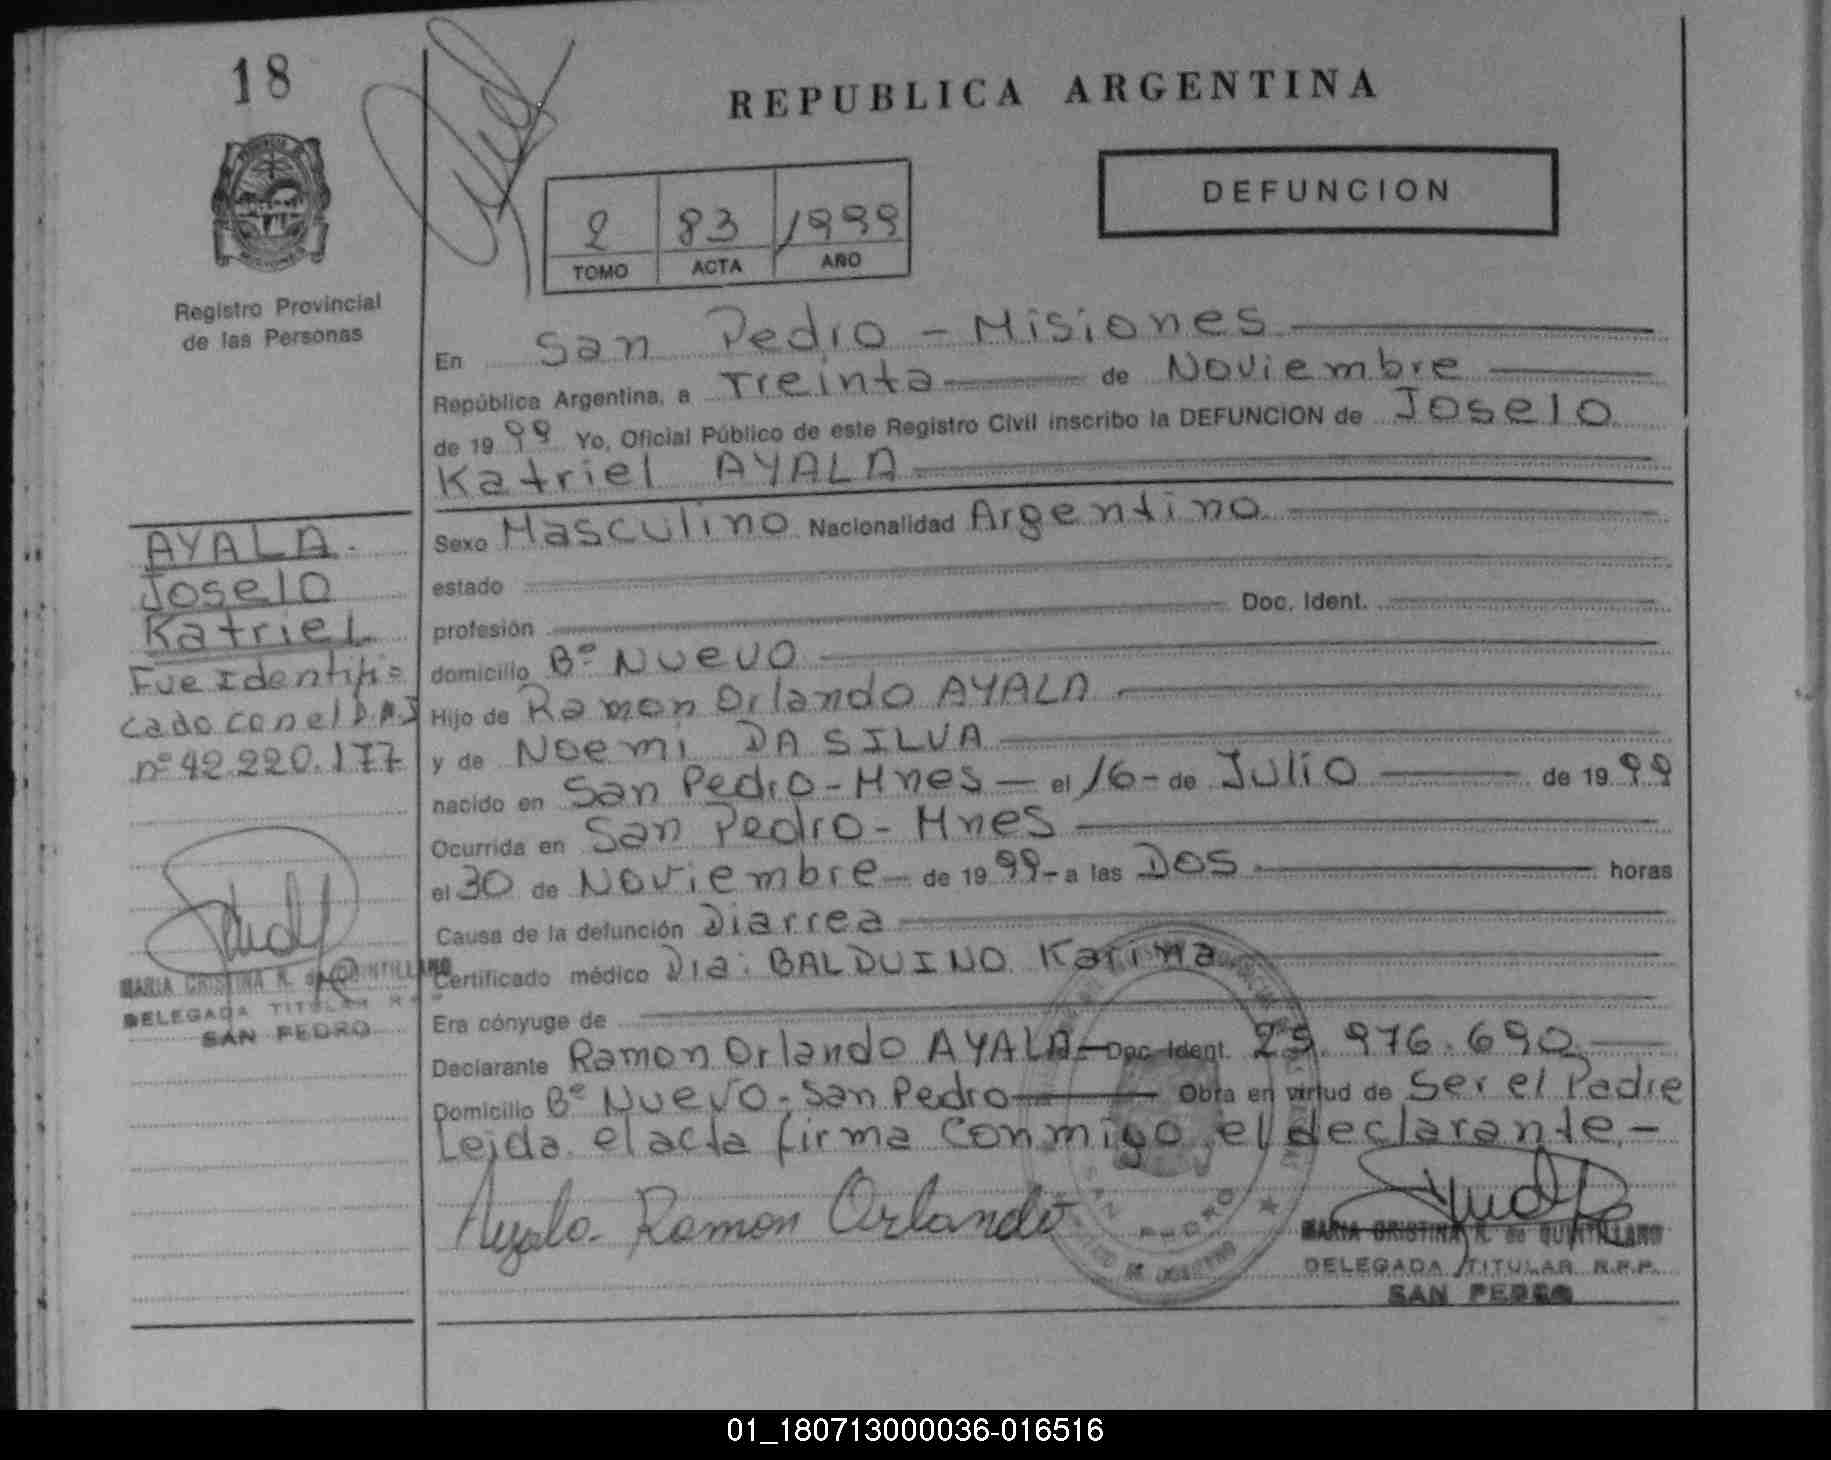 18
REPUBLICA ARGENTINA
DEFUNCION
2 83 1999
TOMO ACTA AÑO
Registro Provincial
de las Personas
En San Pedro - Misiones
República Argentina, a Treinta de Noviembre
de 1999 Yo, Oficial Público de este Registro Civil inscribo la DEFUNCION de Joselo
Katriel AYALA
AYALA.
Joselo
Katriel
Fue Identifi=
cado con el D.N.I
nº 42.220.177
MARIA CRISTINA R. de QUINTILLANO
DELEGADA TITULAR R.P.P.
SAN PEDRO
Sexo Masculino Nacionalidad Argentino
estado
profesión Doc. Ident.
domicilio Bº Nuevo
Hijo de Ramon Orlando AYALA
y de Noemi DA SILVA
nacido en San Pedro - Mnes - el 16 - de Julio de 1999
Ocurrida en San Pedro - Mnes
el 30 de Noviembre - de 1999 - a las Dos horas
Causa de la defunción Diarrea
Certificado médico Dra: BALDUINO Karina
Era cónyuge de
Declarante Ramon Orlando AYALA - Doc. Ident. 25.976.690
Domicilio Bº Nuevo - San Pedro Obra en virtud de Ser el Padre
Leida el acta firma conmigo el declarante. -
Ayala Ramon Orlando
MARIA CRISTINA R. de QUINTILLANO
DELEGADA TITULAR R.P.P.
SAN PEDRO
01_180713000036-016516